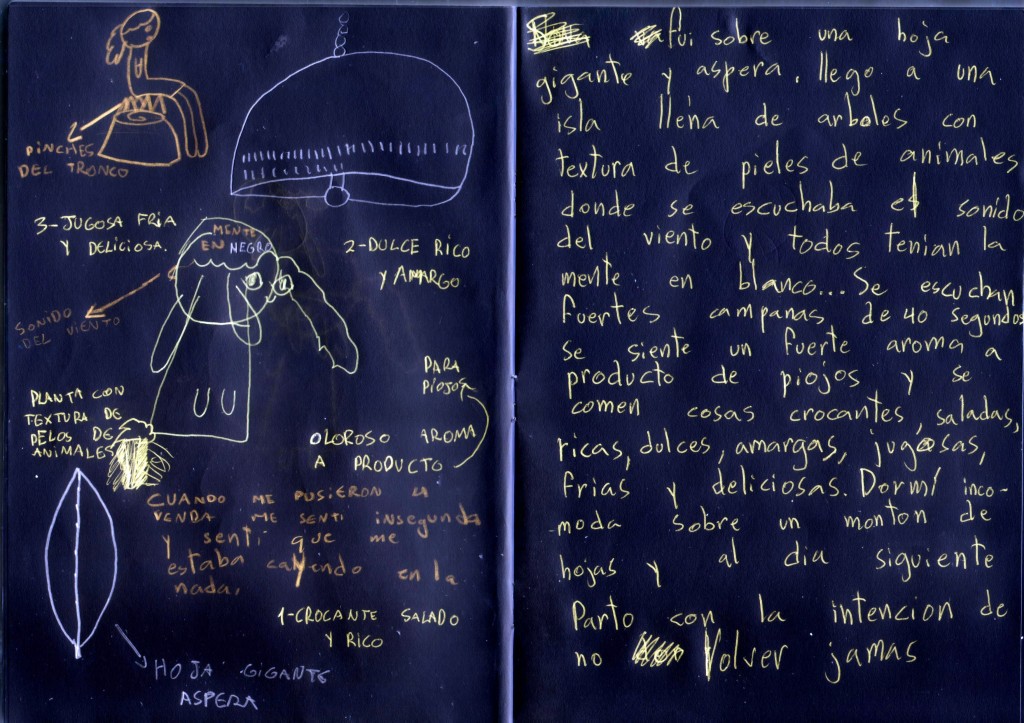 PINCHES
DEL TRONCO
3-JUGOSA FRIA
Y DELICIOSA.
MENTE
EN NEGRO
2-DULCE RICO
Y AMARGO.
SONIDO
DEL VIENTO
PLANTA CON
TEXTURA DE
PELOS DE
ANIMALES
PARA
PIOJOS
OLOROSO AROMA
A PRODUCTO
CUANDO ME PUSIERON LA
VENDA ME SENTI insegunda
y senti que me
estaba cayendo en la
nada.
1-CROCANTE SALADO
Y RICO
HOJA GIGANTE
ASPERA
fui sobre una hoja
gigante y aspera. llego a una
isla llena de arboles con
textura de pieles de animales
donde se escuchaba el sonido
del viento y todos tenian la
mente en blanco... Se escuchan
fuertes campanas de 40 segundos
se siente un fuerte aroma a
producto de piojos y se
comen cosas crocantes, saladas,
ricas, dulces, amargas, jugosas,
frias y deliciosas. Dormí inco-
moda sobre un monton de
hojas y al dia siguiente
Parto con la intencion de
no Volver jamas